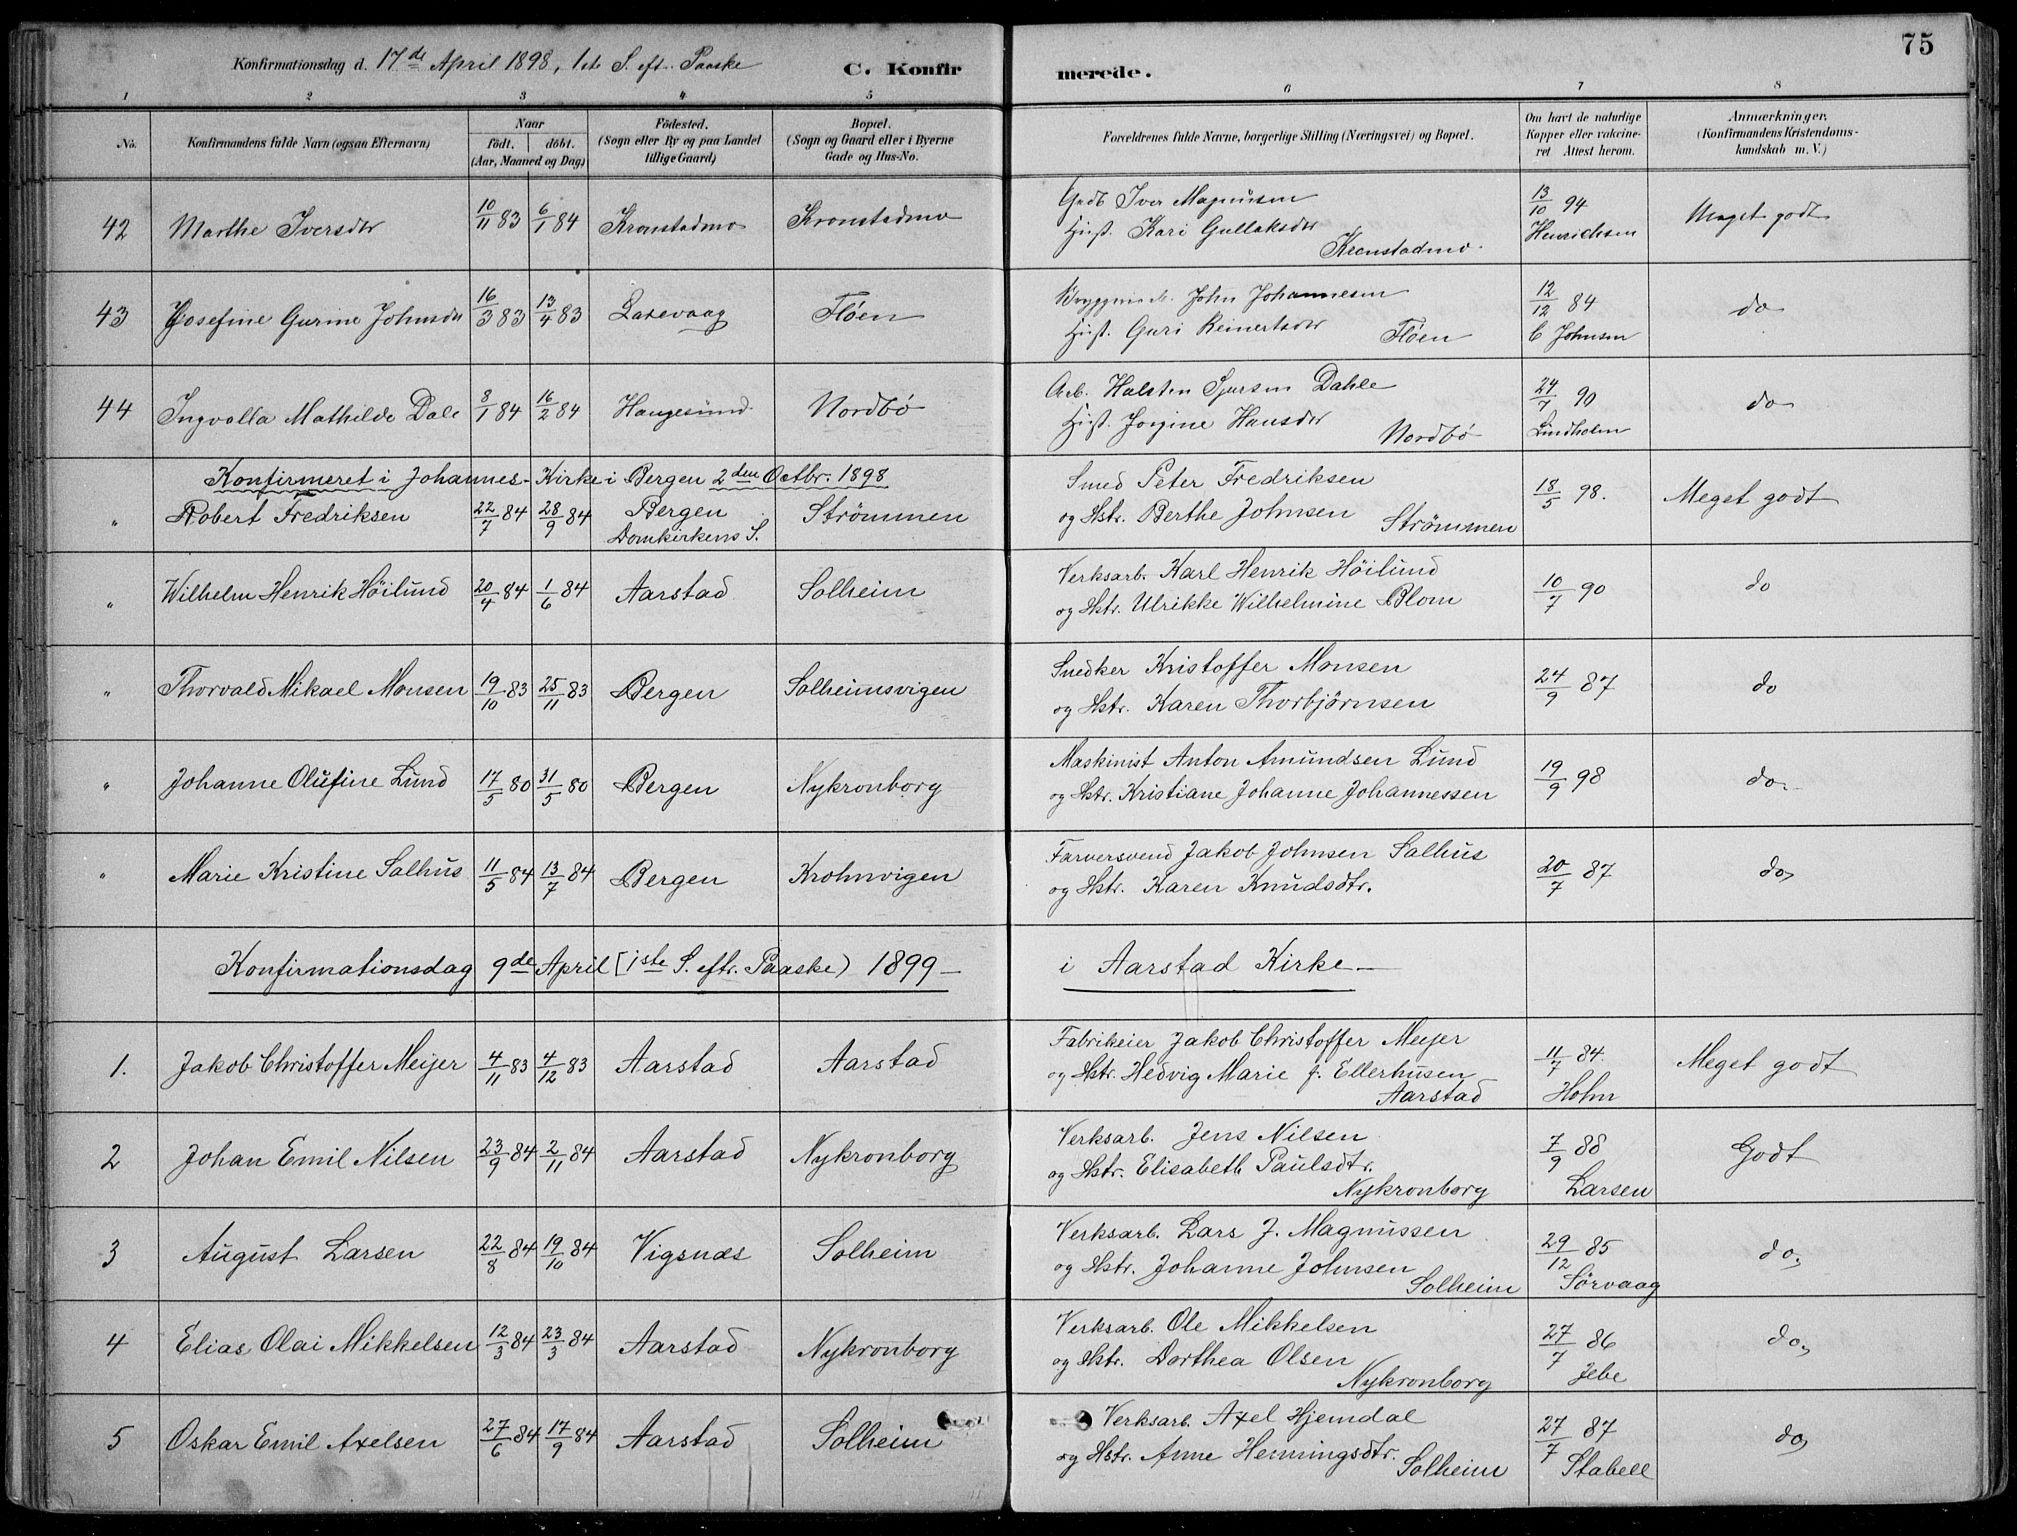 75
Konfirmationsdag d. 17de April 1898, 1ste S. eft. Paaske C. Konfirmerede.
1 2 3 4 5 6 7 8
No. Konfirmandens fulde Navn (ogsaa Efternavn) Naar født. døbt. (Aar, Maaned og Dag) Fødested. (Sogn eller By og paa Landet tillige Gaard) Bopæl. (Sogn og Gaard eller i Byerne Gade og Hus-No. Forældrenes fulde Navne, borgerlige Stilling (Næringsvei) og Bopæl. Om havt de naturlige Kopper eller vakcineret Attest herom. Anmærkninger. (Konfirmandens Kristendomskundskab m. V.)
42 Marthe Iversdtr 10/11 83 6/1 84 Kronstadmo Kronstadmo Gadb Iver Magnussen 13/10 94 Meget godt
Hust. Kari Gullaksdtr Kronstadmo Henrichsen
43 Josefine Gurine Johnsdtr 16/3 83 13/4 83 Laxevaag Fløen John Johannesen 12/12 84 do
Hust. Guri Reinertsdtr Fløen C Johnsen
44 Ingvolla Mathilde Dale 8/1 84 16/2 84 Haugesund Nordbø Arb. Halsten Sjursen Dahle 24/7 90 do
Hust. Jorgine Hansdtr Nordbø Lindholm
Konfirmeret i Johannes-Kirke i Bergen 2den Octbr. 1898
" Robert Fredriksen 22/7 84 28/9 84 Bergen Domkirkens S. Strømmen Smed Peter Fredriksen 18/5 98. Meget godt
og Hstr. Berthe Johnsen Strømmen
" Wilhelm Henrik Høilund 20/4 84 1/6 84 Aarstad Solheim Verksarb. Karl Henrik Høilund 10/7 90 do
og Hstr. Ulrikke Wilhelmine Blom
" Thorvald Mikael Monsen 19/10 83 25/11 83 Bergen Solheimsvigen Snedker Kristoffer Monsen 24/9 87 do
og Hstr. Karen Thorbjørnsen
" Johanne Olufine Lund 17/5 80 31/5 80 Bergen Nykronborg Maskinist Anton Amundsen Lund 19/9 98 do.
og Hstr. Kristiane Johanne Johannessen
" Marie Kristine Salhus 11/5 84 13/7 84 Bergen Krohnvigen Farversvend Jakob Johnsen Salhus 20/7 87 do,
og Hstr. Karen Knudsdtr.
Konfirmationsdag 9de April [1ste S. eftr. Paaske) 1899 — i Aarstad Kirke —
1. Jakob Christoffer Meijer 4/11 83 4/12 83 Aarstad Aarstad Fabrikeier Jakob Christoffer Meijer 11/7 84. Meget godt
og Hstr. Hedvig Marie f. Ellerhusen Aarstad Holm
2 Johan Emil Nilsen 23/9 84 2/11 84 Aarstad Nykronborg Verksarb. Jens Nilsen 7/9 88 Godt
og Hstr. Elisabeth Paulsdtr. Nykronborg Larsen
3 August Larsen 22/8 84 19/10 84 Vigsnæs Solheim Verksarb. Lars J. Magnussen 29/12 85 do,
og Hstr. Johanne Johnsen Solheim Sørvaag
4 Elias Olai Mikkelsen 12/3 84 23/3 84 Aarstad Nykronborg Verksarb. Ole Mikkelsen 27/7 86 do,
og Hstr. Dorthea Olsen Nykronborg Jebe
5 Oskar Emil Axelsen 27/6 84 17/9 84 Aarstad Solheim Verksarb. Axel Hjemdal 27/7 87 do,
og Hstr. Anne Henningsdtr. Solheim Stabell